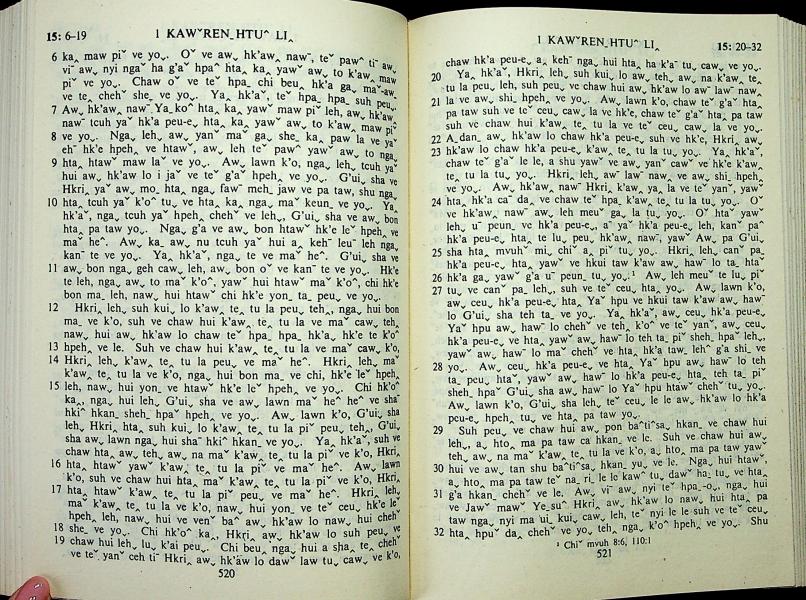 15: 6–19
1 KAWˇRENˍHTUˆ LIꞈ
6 kaꞈ maw piˇ ve yoˬ. Oˇ ve awˬ hk'awˬ nawˉ, teˇ pawˆ tiˉ awˬ
viˉ awˬ nyi ngaˇ ha g'aˇ hpaˆ htaˬ kaˬ yawˇ awˬ to k'awˬ maw
piˇ ve yoˬ. Chaw oˇ ve teˇ hpaˍ chi beuˬ hk'a gaˬ maˇ‑awˬ
ve teˬ chehˇ sheˬ ve yoˬ. Yaˬ hk'aˇ, teˇ hpaˍ hpaˍ suh peuˬ
7 Awˬ hk'awˬ nawˉ Yaˬkoˆ htaˬ kaˬ yawˇ maw piˇ leh, awˬ hk'aw
nawˉ tcuh yaˇ hk'a peu‑eˬ htaˬ kaˬ yawˇ awˬ to k'awˬ maw piˇ
8 ve yoˬ. Ngaˬ leh, awˬ yanˇ maˇ gaˬ sheˬ kaˬ paw la ve yaˇ
ehˉ hk'e hpehˬ ve htawˇ, awˬ leh teˇ pawˆ yawˇ awˬ to ngaˬ
9 htaˬ htawˇ maw laˇ ve yoˬ. Awˬ lawn k'o, ngaˬ leh, tcuh yaˇ
hui awˬ hk'aw lo i jaˇ ve teˇ g'aˇ hpehˬ ve yoˬ. G'uiˬ sha ve
Hkriˬ yaˇ awˬ moˬ htaˬ ngaˬ fawˇ mehˬ jaw ve pa taw, shu ngaˬ
10 htaˬ tcuh yaˇ k'oˆ tuˬ ve htaˬ kaˬ ngaˬ maˇ keunˬ ve yoˬ. Yaˬ
hk'aˇ, ngaˬ tcuh yaˇ hpehˬ chehˇ ve lehˬ, G'uiˬ sha ve awˬ bon
htaˬ pa taw yoˬ. Ngaˬ g'a ve awˬ bon htawˇ hk'e leˇ hpehˬ ve
maˇ heˆ. Awˬ kaˬ awˬ nu tcuh yaˇ hui aˬ kehˉ leuˉ leh ngaˬ
kanˉ te ve yoˬ. Yaˬ hk'aˇ, ngaˬ te ve maˇ heˆ. G'uiˬ sha ve
11 awˬ bon ngaˬ geh caw leh, awˬ bon oˇ ve kanˉ te ve yoˬ. Hk'e
te leh, ngaˬ awˬ to maˇ k'oˆ, yawˇ hui htawˇ maˇ k'oˆ, chi hk'e
bon maˬ leh, nawˬ hui htawˇ chi hk'e yonˬ taˬ peuˬ ve yoˬ.
12 Hkriˬ leh, suh kui lo k'awˬ teˬ tu la peuˬ teh, ngaˬ hui bon
maˬ ve k'o, suh ve chaw hui k'awˬ teˬ tu la ve maˇ cawˬ tehˬ
nawˬ hui awˬ hk'aw lo chaw teˇ hpaˍ hpaˍ hk'aˬ hk'e te k'oˆ
13 hpehˬ ve le. Suh ve chaw hui k'awˬ teˬ tu la ve maˇ caw k'oˬ
14 Hkriˬ leh, k'awˬ teˬ tu la peuˬ ve maˇ heˆ. Hkriˬ leh, maˇ
k'awˬ teˬ tu la ve k'o, ngaˬ hui bon maˬ ve chi, hk'e leˇ hpehˬ
15 leh, nawˬ hui yonˬ ve htawˇ hk'e leˇ hpehˬ ve yoˬ. Chi hk'oˆ
kaˬ, ngaˬ hui leh, G'uiˬ sha ve awˬ lawn maˇ heˆ heˆ ve shaˉ
hkiˆ hkanˬ shehˍ hpaˇ hpehˬ ve yoˬ. Awˬ lawn k'o, G'uiˬ sha
leh, Hkriˬ htaˬ suh kui lo k'awˬ teˬ tu la piˇ peuˬ tehˬ, G'uiˬ
sha awˬ lawn ngaˬ hui shaˉ hkiˆ hkanˬ ve yoˬ. Yaˬ hk'aˇ, suh ve
chaw htaˬ awˬ teh, awˬ na maˇ k'awˬ teˬ tu la piˇ ve k'o, Hkriˬ
16 htaˬ htawˇ yawˇ k'awˬ teˬ tu la piˇ ve maˇ heˆ. Awˬ lawn
k'o, suh ve chaw hui htaˬ maˇ k'awˬ teˬ tu la piˇ ve k'o, Hkriˬ
17 htaˬ htawˇ k'awˬ teˬ tu la piˇ peuˬ ve maˇ heˆ. Hkriˬ leh,
maˇ k'awˬ teˬ tu la ve k'o, nawˬ hui yonˬ ve teˇ ceuˬ hk'e leˇ
hpehˬ leh, nawˬ hui ve venˇ baˆ awˬ hk'aw lo nawˬ hui chehˇ
18 sheˬ ve yoˬ. Chi hk'oˆ kaˬ, Hkriˬ awˬ hk'aw lo suh peuˬ ve
19 chaw hui leh, luˬ k'ai peuˬ. Chi beuˬ ngaˬ hui a shaˬ teˬ chehˇ
ve teˇ yanˇ ceh tiˉ Hkriˬ awˬ hk'aw lo dawˇ law tuˬ cawˬ ve k'o,
520
1 KAWˇRENˍHTUˆ LIꞈ
15: 20–32
chaw hk'a peu‑eˬ aˬ kehˉ ngaˬ hui htaˬ haˍk'aˇ tuˬ cawˬ ve yoˬ.
20 Yaˬ hk'aˇ, Hkriˬ leh, suh kui lo awˬ teh, awˬ na k'awˬ teˬ
tu la peuˬ leh, suh peuˬ ve chaw hui awˬ hk'aw lo awˇ lawˇ nawˬ
21 la ve awˬ shiˬ hpehˬ ve yoˬ. Awˬ lawn k'o, chaw teˇ g'aˇ htaˬ
pa taw suh ve teˇ ceuˬ cawˬ la ve hk'e, chaw teˇ g'aˇ htaˬ pa taw
suh ve chaw hui k'awˬ teˬ tu la ve teˇ ceuˬ caw la ve yoˬ.
22 Aˬdanˬ awˬ hk'aw lo chaw hk'a peu‑eˬ suh ve hk'e, Hkriˬ awˬ
23 hk'aw lo chaw hk'a peu‑eˬ k'awˬ teˬ tu la tuˬ yoˬ. Yaˬ hk'aˇ,
chaw teˇ g'aˇ le le, a shu yawˇ ve awˬ yanˇ cawˇ ve hk'e k'awˬ
teˬ tu la tuˬ yoˬ. Hkriˬ leh, awˇ lawˇ nawˬ ve awˬ shiˬ hpehˬ
ve yoˬ. Awˬ hk'awˬ nawˉ Hkriˬ k'awˬ yaˬ la ve teˇ yanˇ, yawˇ
24 htaˬ hk'a caˉ daˬ ve chaw teˇ hpaˬ k'awˬ teˬ tu la tuˬ yoˬ. Oˇ
ve hk'awˬ nawˉ awˬ leh meuˇ gaˬ la tuˬ yoˬ. Oˇ htaˬ yawˇ
leh, uˉ peunˬ ve hk'a peu‑eˬ, aˉ yaˇ hk'a peu‑eˬ leh, kanˇ paˆ
hk'a peu‑eˬ, htaˬ te luˬ peuˬ, hk'awˬ nawˉ, yawˇ Awˬ Pa G'uiˬ
25 sha htaˬ mvuhˇ miˬ chiˇ aˬ piˇ tuˬ yoˬ. Hkriˬ leh, canˇ paˬ
hk'a peu‑eˬ htaˬ yawˇ ve hkui taw k'aw awˬ hawˉ lo taˬ htaˇ
26 hk'a gaˬ yawˇ g'a uˉ peunˬ tuˬ yoˬ.¹ Awˬ leh meuˇ te luˬ piˇ
27 tuˬ ve canˇ paˬ leh, suh ve teˇ ceuˬ htaˬ yoˬ. Awˬ lawn k'o,
awˬ ceuˬ hk'a peu‑eˬ htaˬ Yaˇ hpu ve hkui taw k'aw awˬ hawˉ
lo G'uiˬ sha teh ta ve yoˬ. Yaˬ hk'aˇ, awˬ ceuˬ hk'a peu‑eˬ
Yaˇ hpu awˬ hawˉ lo chehˇ ve tehˬ k'oˆ ve teˇ yanˇ, awˬ ceuˬ
hk'a peu‑eˬ ve htaˬ yawˇ awˬ hawˉ lo teh taˬ piˇ shehˬ hpaˇ lehˬ,
yawˇ awˬ hawˉ lo maˇ chehˇ ve htaˬ hk'a taw leh g'a shiˬ ve
28 yoˬ. Awˬ ceuˬ hk'a peu‑eˬ ve htaˬ Yaˇ hpu awˬ hawˉ lo teh
taˬ peuˬ htaˇ, yawˇ awˬ hawˉ lo hk'a peu‑eˬ htaˬ teh taˬ piˇ
shehˬ hpaˇ G'uiˬ sha awˬ hawˉ lo Yaˇ hpu htawˇ chehˇ tuˬ yoˬ.
Awˬ lawn k'o, G'uiˬ sha leh, teˇ ceuˬ le le awˬ hk'aw lo hk'a
peu‑eˬ hpehˬ tuˬ ve htaˬ pa taw yoˬ.
29 Suh peuˬ ve chaw hui awˬ pon baˆtiˆsaˬ hkanˬ ve chaw hui
lehˬ, aˬ htoˬ ma pa taw ca hkanˬ ve le. Suh ve chaw hui awˬ
teh, awˬ na maˇ k'awˬ teˬ tu la ve k'o, aˬ htoˬ ma pa taw yawˇ
30 hui ve awˬ tan shu baˆtiˆsaˬ hkanˬ yuˬ ve le. Ngaˬ hui htawˇ,
aˬ htoˬ ma pa taw teˇ naˬ riˬ le le kawˆ tuˬ dawˇ haˬ tuˬ ve htaˬ
31 g'a hkanˬ chehˇ ve le. Awˬ viˉ awˬ nyi teˇ hpaˬ‑oˬ, ngaˬ hui
ve Jawˇ mawˇ Yeˬsuˆ Hkriˬ awˬ hk'aw lo nawˬ hui htaˬ pa
taw ngaˬ nyi ma uiˬ kuiˬ cawˬ leh, teˇ nyi le le suh ve teˇ ceuˬ
32 htaˬ hpuˇ daˬ chehˇ ve yoˬ tehˬ ngaˬ k'oˆ hpehˬ ve yoˬ. Shu
¹ Chiˇ mvuh 8:6, 110:1
521